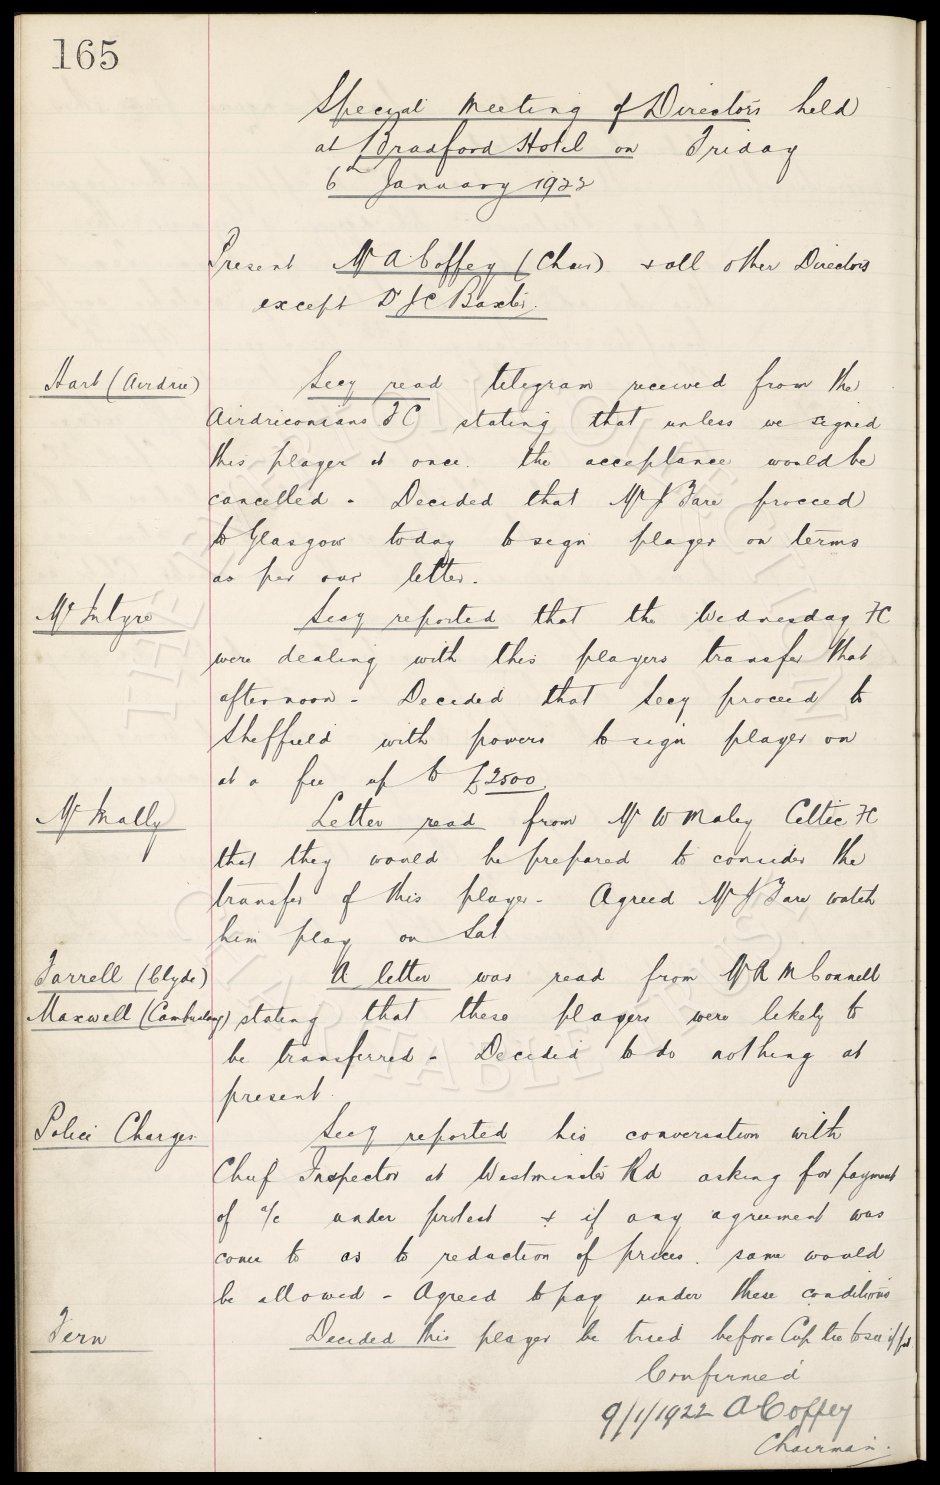 165
Special Meeting of Directors held
at Bradford Hotel on Friday
6th January 1922
Present Mr A. Coffey (Chair) & all other Directors
except Dr J C Baxter.
Hart (Airdrie)
Secy read telegram received from the
Airdrieonians F C stating that unless we signed
this player at once. the acceptance would be
cancelled - Decided that Mr J Fare proceed
to Glasgow today to sign player on terms
as per our letter.
McIntyre
Secy reported that the Wednesday FC
were dealing with this players transfer that
afternoon - Decided that Secy proceed to
Sheffield with powers to sign player on
at a fee up to £2500.
McInally
Letter read from Mr W Maley Celtic FC
that they would be prepared to consider the
transfer of this player - Agreed Mr J Fare watch
him play on Sat
Farrell (Clyde)
Maxwell (Cambuslang)
A letter was read from Mr R McConnell
stating that these players were likely to
be transferred - Decided to do nothing at
present.
Police Charges
Secy reported his conversation with
Chief Inspector at Westminster Rd asking for payment
of a/c under protest & if any agreement was
come to as to reduction of prices. same would
be allowed - Agreed to pay under these conditions
Fern
Decided this player be tried before Cup tie to see if fit
Confirmed
9/1/1922 A Coffey
Chairman.
THE EVERTON COLLECTION
CHARITABLE TRUST